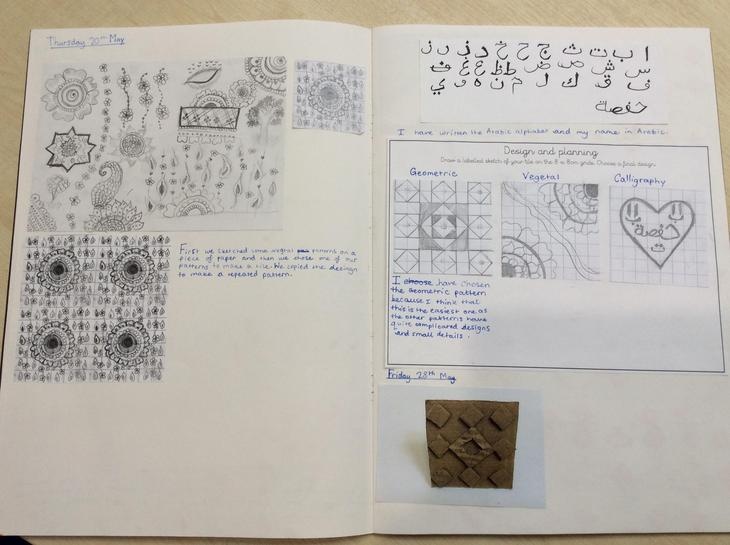 Thursday 20th May
First we sketched some patterns on a
piece of paper and then we chose one of our
patterns to make a tile. We copied the design
to make a repeated pattern.
ا ب ت ث ج ح خ د ذ ر ز
س ش ص ض ط ظ ع غ
ف ق ك ل م ن ه و ي
حفصة
I have written the Arabic alphabet and my name in Arabic.
Design and planning
Draw a labelled sketch of your tile on the 8 x 8cm grids. Choose a final design.
Geometric
Vegetal
Calligraphy
حفصة
I choose have chosen
the Geometric pattern
because I think that
this is the easiest one as
the other patterns have
quite complicared designs
and small details.
Friday 28th May